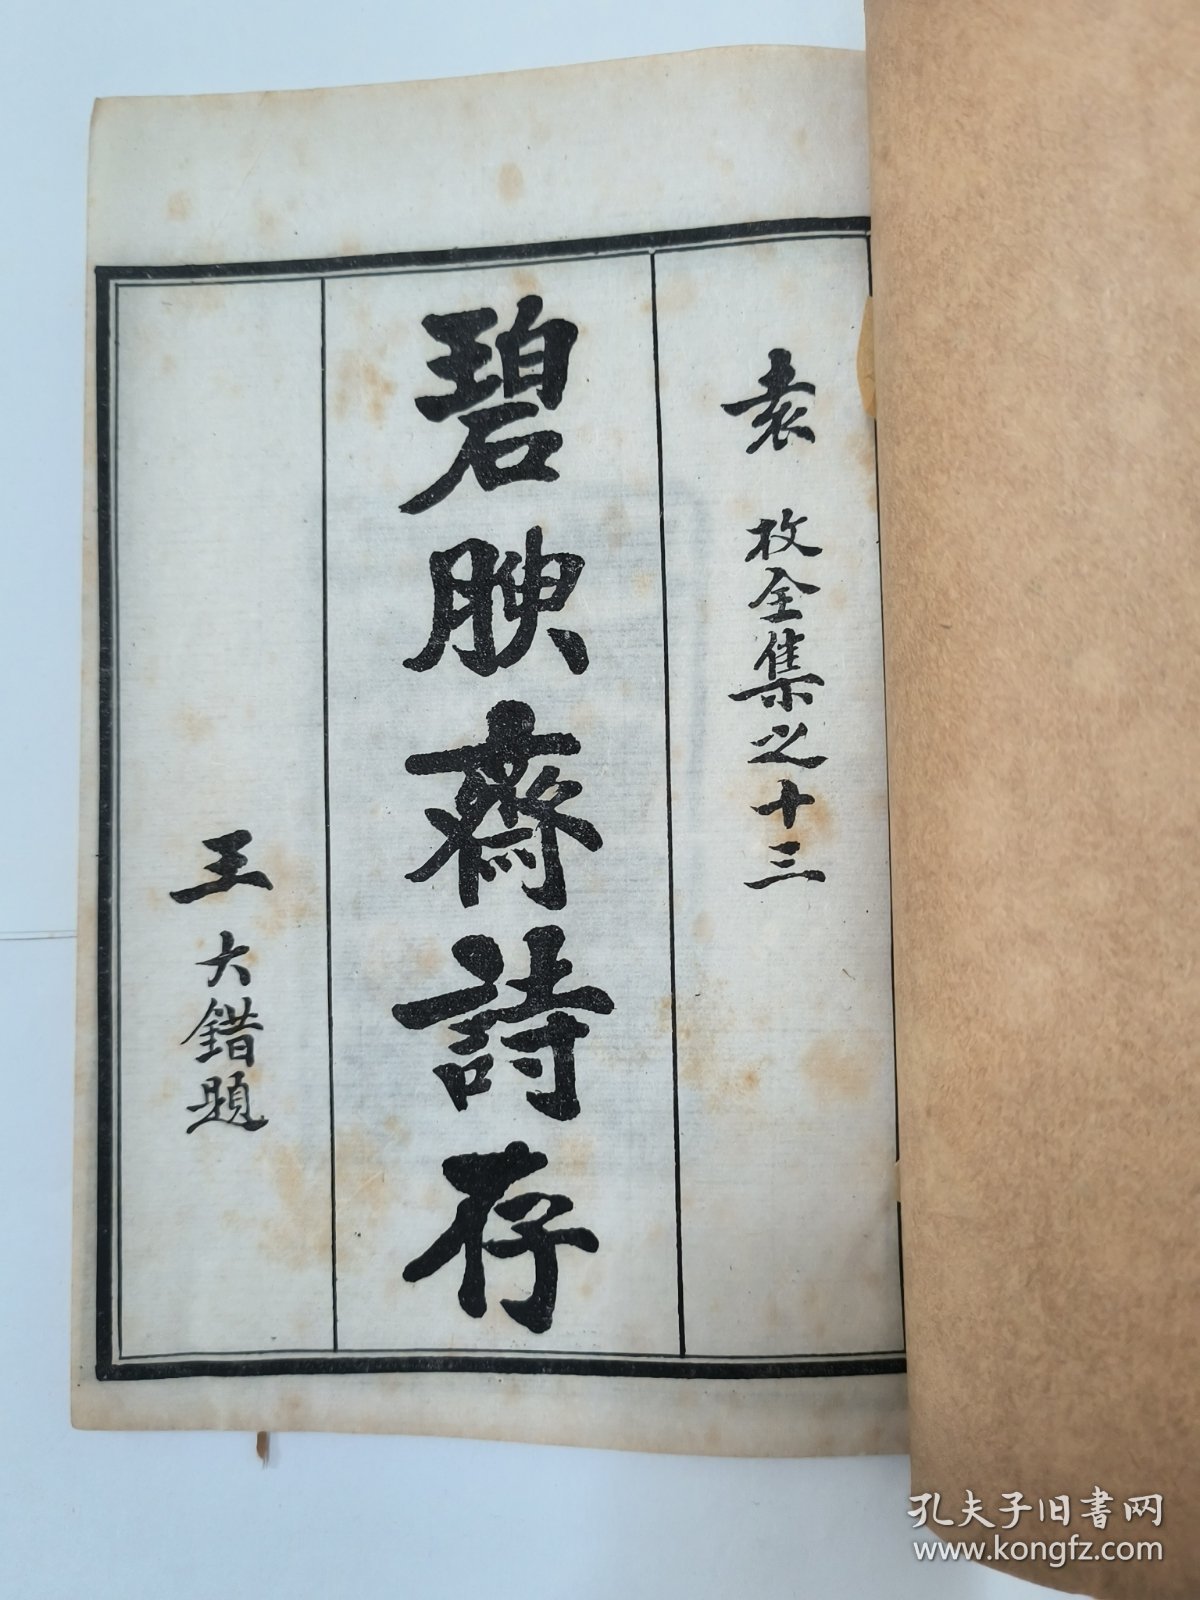 袁枚全集之十三
碧腴齋詩存
王大錯題
孔夫子旧書网
www.kongfz.com